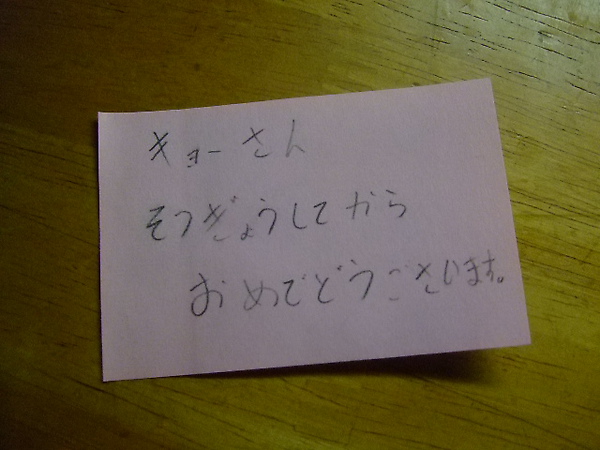 キョーさん
そつぎょうしてから
おめでどうございます。